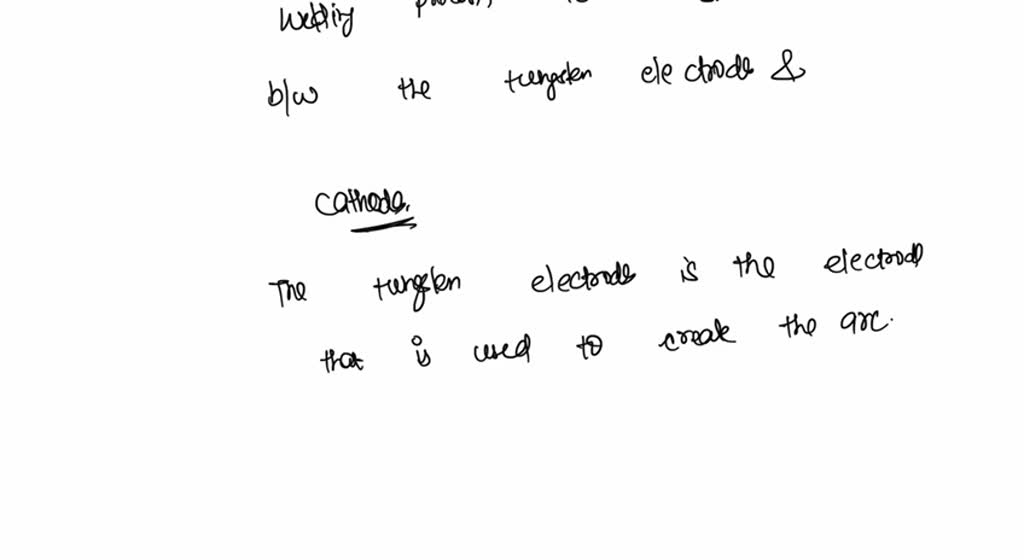 Welding
b/w the tungsten electrode &
Cathode.
The tungsten electrode is the electrod
that is used to create the arc.